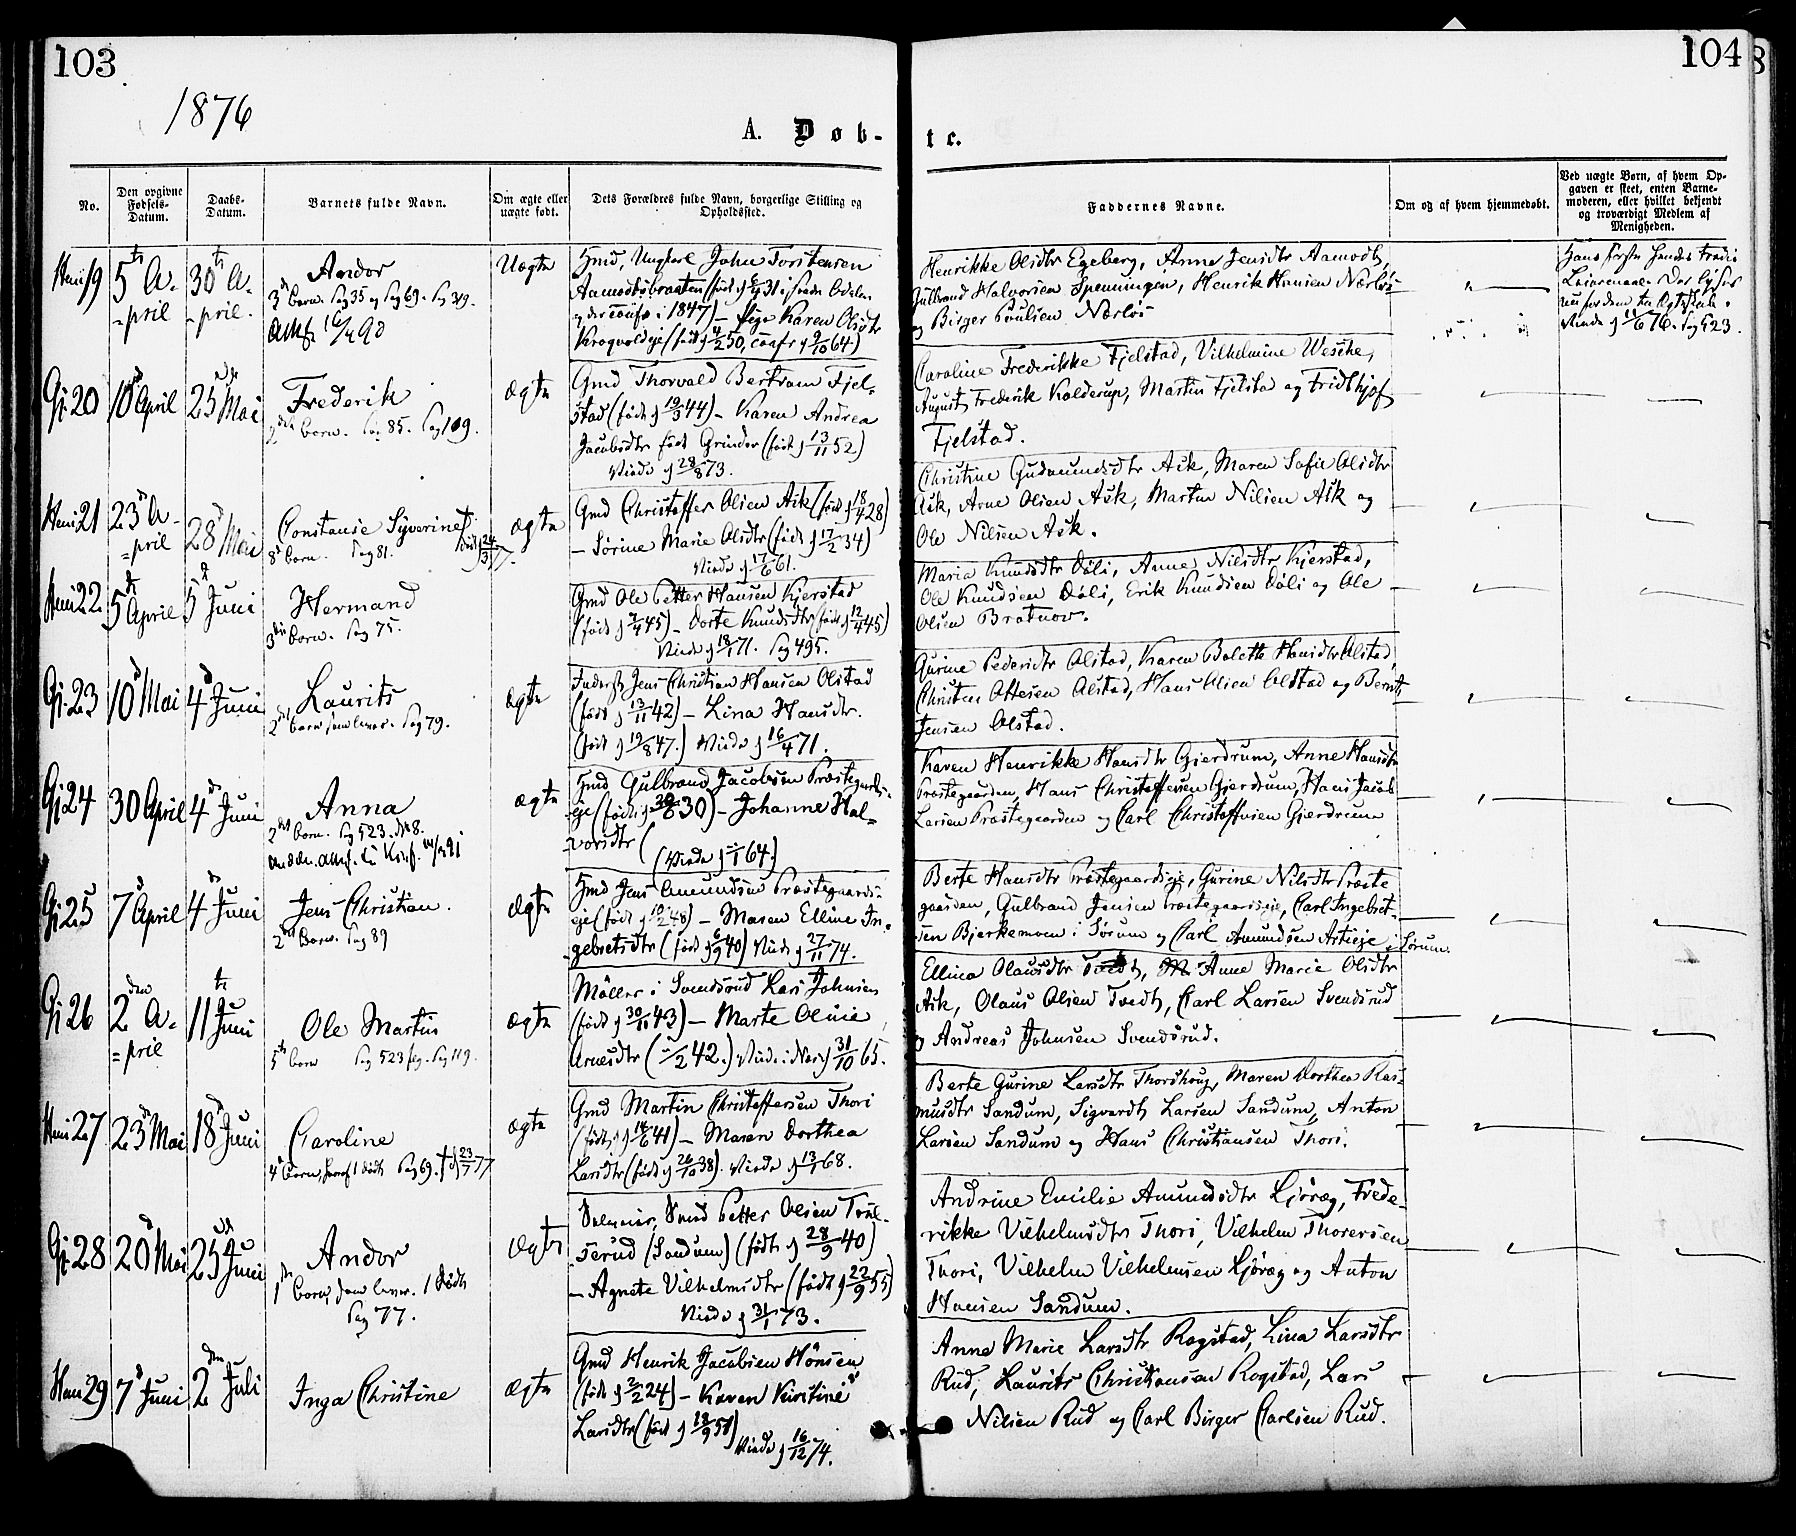 103
104
1876
A. Døb-
te.
No.
Den opgivne Fødsels-Datum.
Daabs-Datum.
Barnets fulde Navn.
Om ægte eller uægte født.
Dets Forældres fulde Navn, borgerlige Stilling og Opholdssted.
Faddernes Navne.
Om og af hvem hjemmedøbt.
Ved uægte Børn, af hvem Opgaven er skeet, enten Barnemoderen, eller hvilket bekjendt og troværdigt Medlem af Menigheden.
19
5 A-
=pril
30 A-
=pril.
Andor
3 Barn. Pag 35 og Pag 69. Pag 319.
Uægte
Ungkarl John Torstensen
1847) — Pige Karen Olsdtr
Henrikke Olsdtr Egeberg, Anne Jensdtr Aamodt,
Gulbrand Halvorsen Spenningen, Henrik Hansen Nærløs
og Birger Paulsen Nærløs
Gj. 20
10 April
25 Mai
Frederik
2det Barn. Pag 85. Pag 109.
ægte
Gmd Thorvald Bertram Fjel-
stad (født 19/3 44) — Karen Andrea
Jacobsdtr født Grinder (født 13/11 52)
Viede 28/8 73.
Caroline Frederikke Fjelstad, Vilhelmine Wesche,
August Frederik Kolderup, Martin Fjelstad og Fridthjof
Fjelstad.
21
23 A-
=pril
28 Mai
Constanse Syverine
8 Barn. Pag 81.
ægte
Gmd Christoffer Olsen Ask (født 18/4 28)
— Sørine Marie Olsdtr (født 17/2 34)
Viede 17/6 61.
Christine Gudmundsdtr Ask, Maren Sofie Olsdtr
Ask, Arne Olsen Ask, Martin Nilsen Ask og
Ole Nilsen Ask.
22
5 April
5 Juni
Hermand
3die Barn. Pag 75.
Gmd Ole Petter Hansen Kjerstad
(født 45) — Dorte Knudsdtr (født 12/4 45)
Viede 18/1 71. Pag 495.
Maria Knudsdtr Døli, Anne Nilsdtr Kjerstad,
Ole Knudsen Døli, Erik Knudsen Døli og Ole
Olsen Bratnov.
Gj. 23
10 Mai
4 Juni
Laurits
2 Barn, Pag 79.
ægte
Inderst Jens Christian Hansen Olstad
(født 13/11 42) — Lina Hansdtr.
(født 19/8 47.) Viede 16/4 71.
Gurine Pedersdtr Olstad, Karen Bolette Hansdtr Olstad,
Christen Ottesen Olstad, Hans Olsen Olstad og Bernt
Jensen Olstad.
Gj 24
30 April
4 Juni
Anna
2det Barn. Pag 523. No 8.
ægte
Hmd Gulbrand Jacobsen Præstegards-
eje (født 30) — Johanne Hal-
vorsdtr (
(Viede 64.)
Karen Henrikke Hansdtr Gjerdrum, Anne Hansdtr
Præstegaarden, Hans Christoffersen Gjerdrum, Hans Jacob
Larsen Præstegaarden og Carl Christoffersen Gjerdrum
Gj 25
7 April
4 Juni
Jens Christian.
2det Barn. Pag 89
ægte
Hmd Jens Amundsen Præstegaards-
eje (født 48) — Maren Elline In-
gebretsdtr (født 6/9 40) Viede 27/11 74.
Berte Hansdtr Præstegaardseje, Gurine Nilsdtr Præste
gaarden, Gulbrand Jensen Præstegaardseje, Carl Ingebret-
sen Bjerkemoen i Sørum og Carl Amundsen Asteje i Sørum.
Gj 26
2 A-
=pril
11 Juni
Ole Martin
5te Barn Pag 523 Pag 119.
ægte
Møller i Svendsrud Lars Johnsen
(født 30/11 43) — Marte Oline
Arnesdtr (/2 42.) Viede 31/10 65.
Ellina Olausdtr Tvedt, Anne Marie Olsdtr
Ask, Olaus Olsen Tvedt, Carl Larsen Svendsrud
og Andreas Johnsen Svendsrud.
27
23 Mai
18 Juni
Caroline
4 Barn, 1 dødt Pag 69. † 23/7 77
ægte
Gmd Martin Christoffersen Thori
(født 14/6 41) — Maren Dorthea
Larsdtr (født 26/10 38). Viede 13/1 68.
Berte Gurine Larsdtr Thorshoug, Maren Dorthea Ras-
musdtr Sandum, Sigvardt Larsen Sandum, Anton
Larsen Sandum og Hans Christiansen Thori.
Gj. 28
20 Mai
25 Juni
Andor
1 Barn, 1 dødt
Pag 77.
ægte
Petter Olsen Trul-
serud (Sandum) (født 28/9 40)
— Agnete Vilhelmsdtr (født 22/9 55)
Viede 31/1 73.
Andrine Emilie Amundsdtr Kjøræg, Frede-
rikke Vilhelmsdtr Thori, Vilhelm Thorersen
Thori, Vilhelm Vilhelmsen Kjøræg og Anton
Hansen Sandum.
29
7 Juni
2 Juli
Inga Christine
ægte
Gmd Henrik Jacobsen Hønsen
(født 2/2 24) — Karen Kirstine
Larsdtr (født 18/9 50)
Viede 16/12 74.
Anne Marie Larsdtr Rogstad, Lina Larsdtr
Rud, Laurits Christiansen Rogstad, Lars
Nilsen Rud og Carl Birger Carlsen Rud.